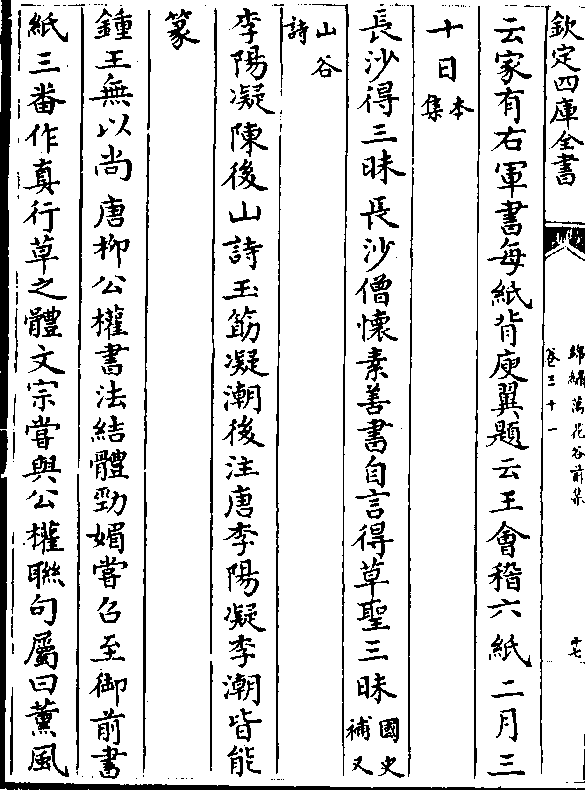 欽定四庫全書
錦繡萬花谷前集
卷三十一
十七
云家有右軍書每紙背庾翼題云王會稽六紙二月三
十日本集
長沙得三昧長沙僧懷素善書自言得草聖三昧國史補又
山谷詩
李陽凝陳後山詩玉筯凝潮後注唐李陽凝李潮皆能
篆
鍾王無以尚唐柳公權書法結體勁媚嘗召至御前書
紙三番作真行草之體文宗嘗與公權聯句屬曰薰風